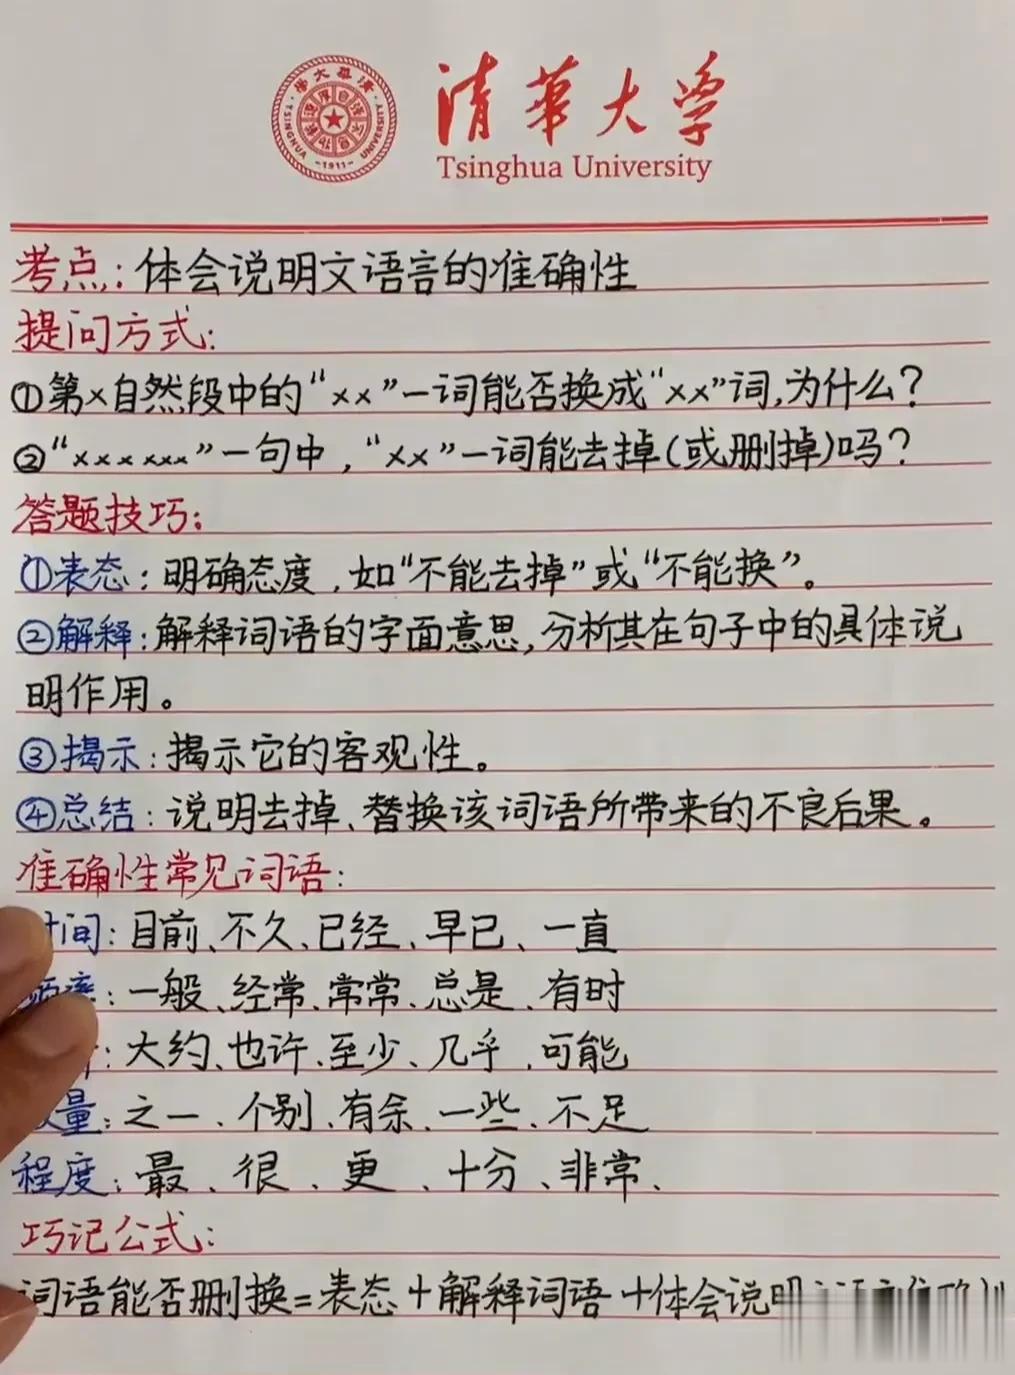 清华大学
Tsinghua University
TSINGHUA UNIVERSITY
-1911-
考点:体会说明文语言的准确性
提问方式:
①第×自然段中的“××”一词能否换成“××”词,为什么?
②“××××××”一句中,“××”一词能去掉(或删掉)吗?
答题技巧:
①表态:明确态度,如“不能去掉”或“不能换”。
②解释:解释词语的字面意思,分析其在句子中的具体说
明作用。
③揭示:揭示它的客观性。
④总结:说明去掉、替换该词语所带来的不良后果。
准确性常见词语:
时间:目前、不久、已经、早已、一直
频率:一般、经常、常常、总是、有时
:大约、也许、至少、几乎、可能
量:之一、个别、有余、一些、不足
程度:最、很、更、十分、非常、
巧记公式:
词语能否删换=表态+解释词语+体会说明